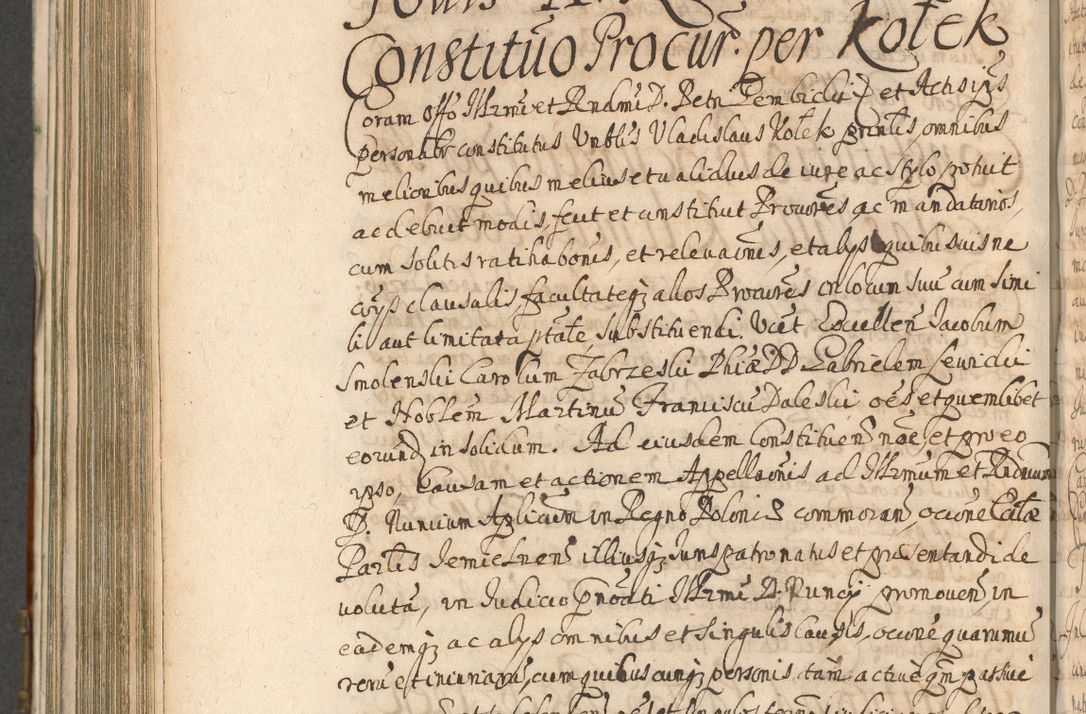 Constitũo Procur̃. per Kołek
Coram offo Illr̃mi et Rndmi D. Petri Gembicki et Actis ip̃s
personalr̃ constitutus Vnobl̃is Vladislaus Kołek gr̃interl̃is omnibus
melioribus quibus melius et ualidius de iure ac stylo potuit
ac debuit modis, fecit et constituit Procur̃es ac mandatarios,
cum solitis ratihabonis, et releuaonis, et alijs quibusuis ne
cr̃ijs clausulis, facultateq; alios Procur̃es in locum suu cum simi
li aut limitata ptate, substituendi. Vcet Excellen Jacobum
Smolenskii Carolum Zabrzeskii Phiæ DD Gabrielem Leuickii
et Noblem Martinũ Franciscũ Daleskii oẽs et quemlibet
eorund in solidum. Ad eiusdem Constituen noẽ, et pro eo
ipso, Causam et actionem Appellaonis ad Illr̃mum et Rndmum
D. Nuncium Aplicum in Regno Poloniæ commoran, ocione Eccl̃æ
Par̃lis Jemielnen illiusq; Juris patronatus et præsentandi de
uolutã, in Judicio pr̃noati Illr̃mi D. Nuncij promouen, in
eademq; ac alijs omnibus et singulis causis, ocione quarumuis
rerũ et iniuriarũ, cum quibuscunq; personis tam actiue qm̃ passiue